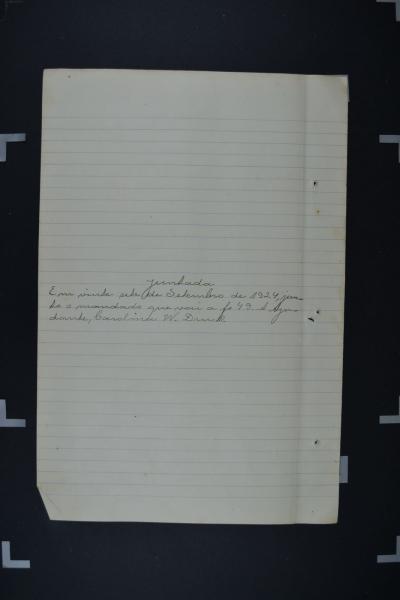 Juntada
Em vinte sete de Setembro de 1924, jun-
to o mandado que vai a fs 49. A Aju-
dante, Carolina W.